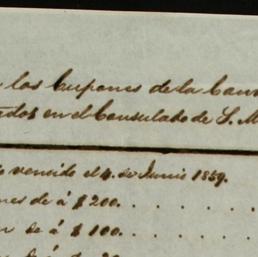 los Cupones de la Con
en el Consulado de S. M
vencido el 4. de Junio 1859.
nes de á $ 200. . . . . . .
de á $ 100. . . . . . .